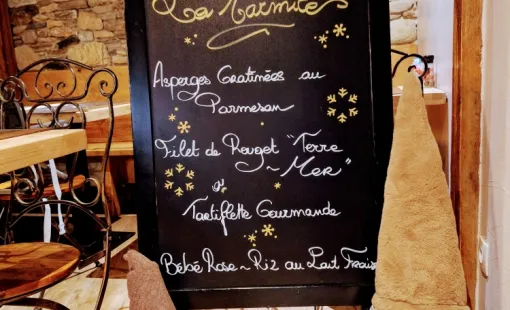 La Marmite
Asperges Gratinées au
Parmesan
Filet de Rouget "Terre
~ Mer"
Tartiflette Gourmande
Bébé Rose ~ Riz au Lait Frais